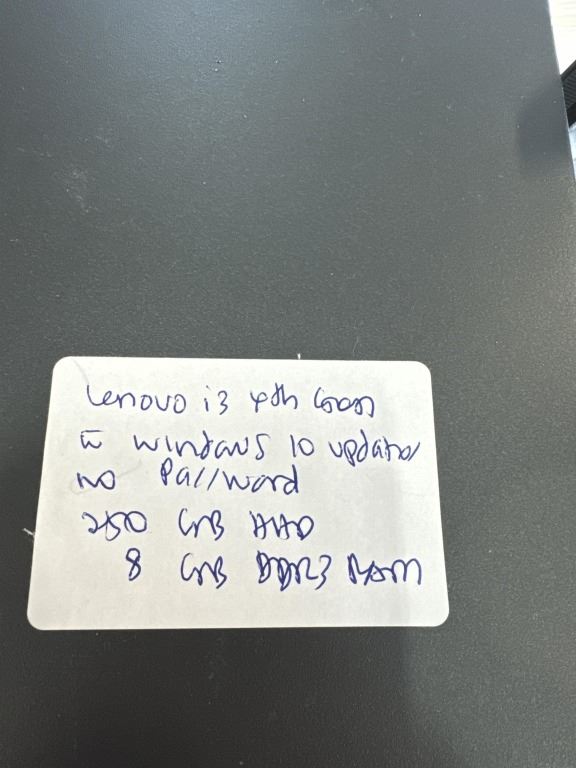 Lenovo i3 4th Gen
w̅ windows 10 updated
no Password
250 GB HDD
8 GB DDR3 RAM